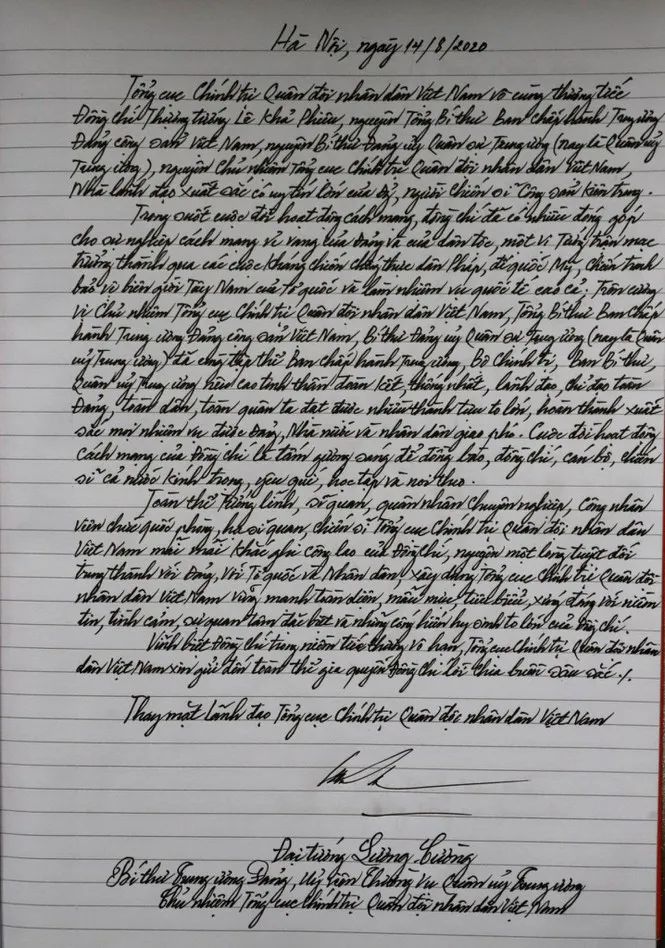 Hà Nội, ngày 14/8/2020
Tổng cục Chính trị Quân đội nhân dân Việt Nam vô cùng thương tiếc
Đồng chí Thượng tướng Lê Khả Phiêu, nguyên Tổng Bí thư Ban chấp hành Trung ương
Đảng cộng sản Việt Nam, nguyên Bí thư Đảng ủy Quân sự Trung ương (nay là Quân uỷ
Trung ương), nguyên Chủ nhiệm Tổng cục Chính trị Quân đội nhân dân Việt Nam,
Nhà lãnh đạo xuất sắc có uy tín lớn của Đảng, người chiến sĩ Cộng sản Kiên trung.
Trong suốt cuộc đời hoạt động cách mạng, đồng chí đã có nhiều đóng góp
cho sự nghiệp cách mạng vẻ vang của Đảng và của dân tộc, một vị Tướng trận mạc
trưởng thành qua các cuộc Kháng chiến chống thực dân Pháp, đế quốc Mỹ, chiến tranh
bảo vệ biên giới Tây Nam của Tổ quốc và làm nhiệm vụ quốc tế cao cả. Trên cương
vị Chủ nhiệm Tổng cục Chính trị Quân đội nhân dân Việt Nam, Tổng Bí thư Ban Chấp
hành Trung ương Đảng cộng sản Việt Nam, Bí thư Đảng uỷ Quân sự Trung ương (nay là Quân
uỷ Trung ương) đã cùng tập thể Ban chấp hành Trung ương, Bộ Chính trị, Ban Bí thư,
Quân uỷ Trung ương nêu cao tinh thần đoàn kết thống nhất, lãnh đạo, chỉ đạo toàn
Đảng, toàn dân, toàn quân ta đạt được nhiều thành tựu to lớn, hoàn thành xuất
sắc mọi nhiệm vụ được Đảng, Nhà nước và nhân dân giao phó. Cuộc đời hoạt động
cách mạng của Đồng chí là tấm gương sáng để đồng bào, đồng chí, cán bộ, chiến
sĩ cả nước kính trọng, yêu quí, học tập và noi theo.
Toàn thể Tướng lĩnh, sĩ quan, quân nhân chuyên nghiệp, công nhân
viên chức quốc phòng, hạ sĩ quan, chiến sĩ Tổng cục Chính trị Quân đội nhân dân
Việt Nam mãi mãi Khắc ghi công lao của Đồng chí, nguyện một lòng tuyệt đối
trung thành với Đảng, với Tổ quốc và Nhân dân, xây dựng Tổng cục Chính trị Quân đội
nhân dân Việt Nam vững mạnh toàn diện, mẫu mực, tiêu biểu, xứng đáng với niềm
tin, tình cảm, sự quan tâm đặc biệt và những cống hiến hy sinh to lớn của Đồng chí.
Vĩnh biệt Đồng chí trong niềm tiếc thương vô hạn, Tổng cục Chính trị Quân đội nhân
dân Việt Nam xin gửi đến toàn thể gia quyến Đồng chí lời Chia buồn sâu sắc./.
Thay mặt lãnh đạo Tổng cục Chính trị Quân đội nhân dân Việt Nam
Đại tướng Lương Cường
Bí thư Trung ương Đảng, Uỷ viên Thường vụ Quân uỷ Trung ương
Chủ nhiệm Tổng cục Chính trị Quân đội nhân dân Việt Nam